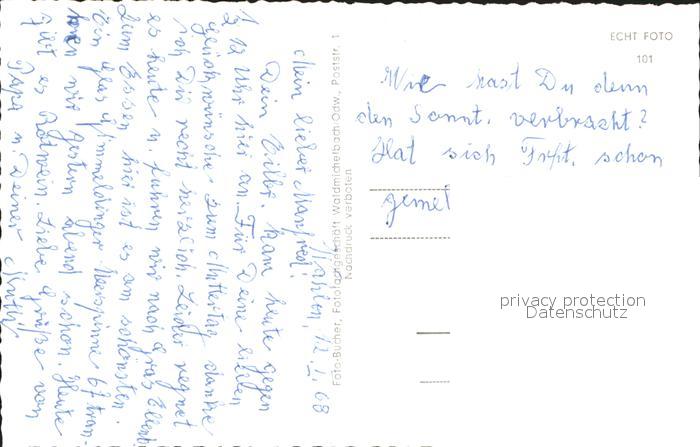 Wahlen, 12.5.68
Mein lieber Manfred!
Dein Eilbr. kam heute gegen
½ 12 Uhr hier an. Für Deine lieben
Glückwünsche zum Muttertag danke
ich Dir recht herzlich. Leider regnet
es heute u. fuhren wir nach Gras Ellenb.
zum Essen. Hier ist es am schönsten.
Ein Glas Gimmeldinger Meerspinne 67 tran-
ken wir gestern abend schon. Heute
gibt es Rotwein. Liebe Grüße von
Papa u. Deiner Mutti
Wie hast Du denn
den Sonnt. verbracht?
Hat sich schon
gemel
ECHT FOTO
101
Foto-Bucher, Fotofachgeschäft Waldmichelbach-Odw., Poststr. 1
Nachdruck verboten
privacy protection
Datenschutz